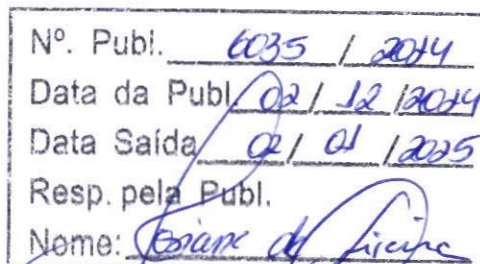 Nº. Publ. 6035 / 2024
Data da Publ. 02 / 12 / 2024
Data Saída 02 / 01 / 2025
Resp. pela Publ.
Nome: